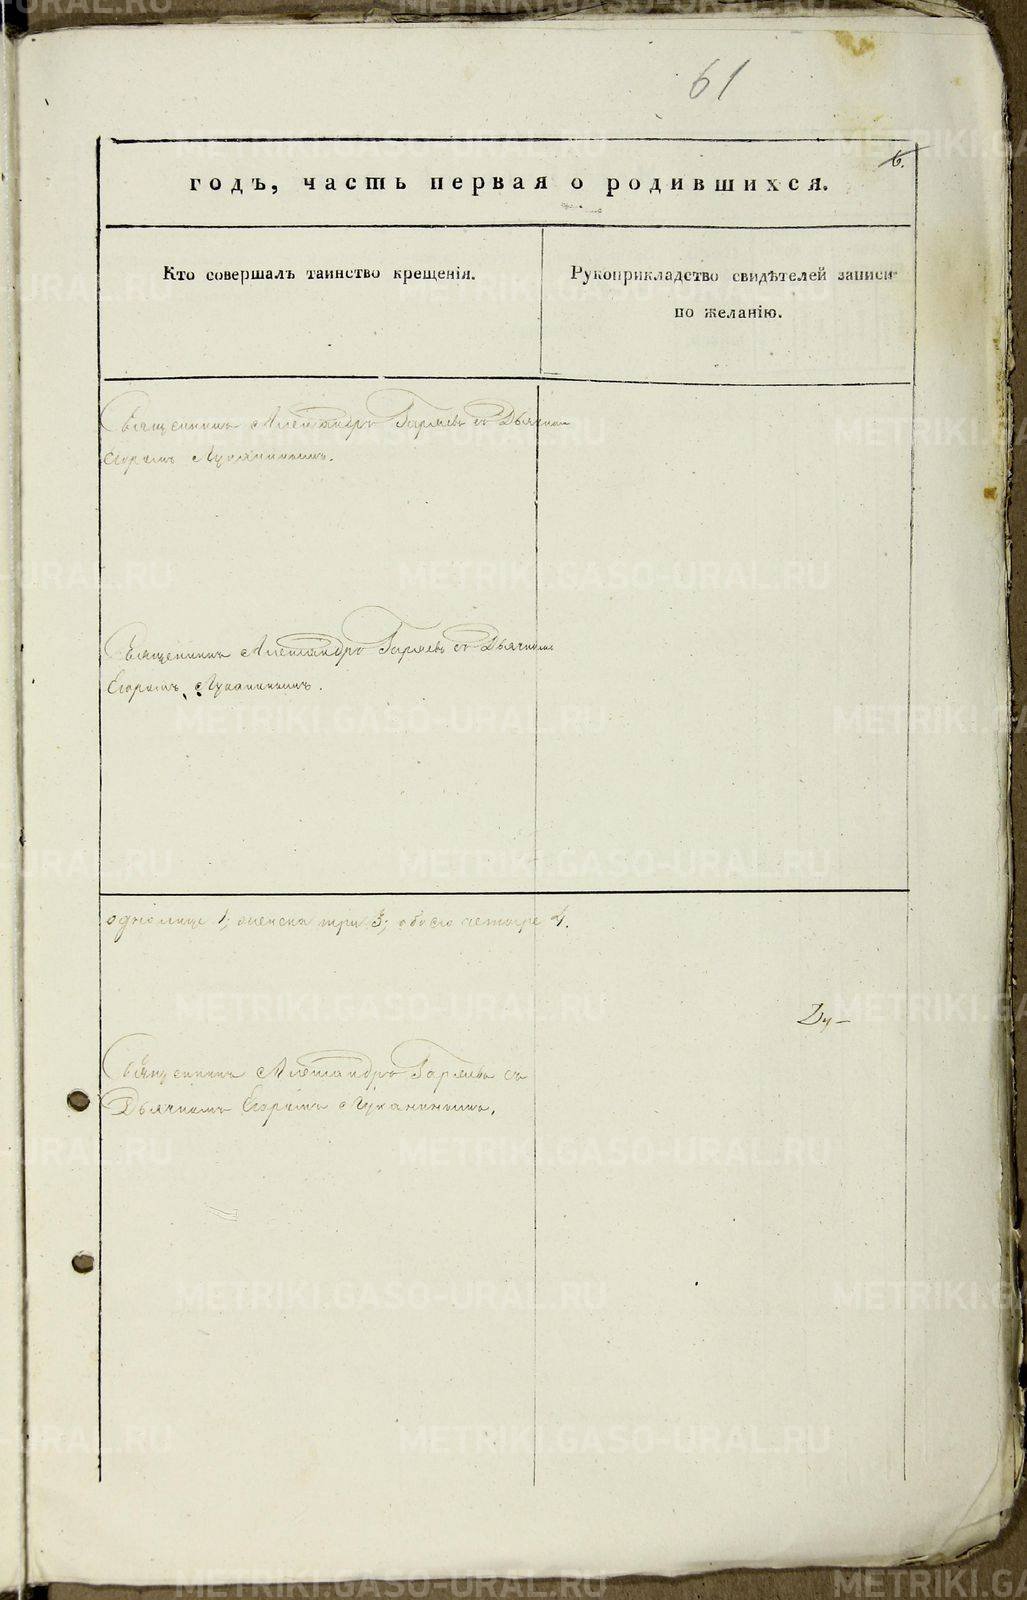 61
6.
годъ, часть первая о родившихся.
Кто совершалъ таинство крещенія.
Рукоприкладство свидѣтелей записи
по желанію.
Священникъ Александръ Гаряевъ съ Дьячкомъ
Егоромъ Луканинымъ.
Священникъ Александръ Гаряевъ съ Дьячкомъ
Егоромъ Луканинымъ.
1; женска три 3; обоего четыре 4.
Священникъ Александръ Гаряевъ съ
Дьячкомъ Егоромъ Луканинымъ.
METRIKI.GASO-URAL.RU